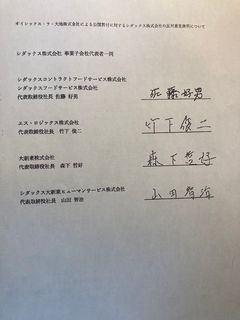 オイシックス・ラ・大地株式会社による公開買付に対するシダックス株式会社の反対意見表明について
シダックス株式会社 事業子会社代表者一同
シダックスコントラクトフードサービス株式会社
シダックスフードサービス株式会社
代表取締役社長 佐藤 好男
佐藤好男
エス・ロジックス株式会社
代表取締役社長 竹下 俊二
竹下俊二
大新東株式会社
代表取締役社長 森下 哲好
森下哲好
シダックス大新東ヒューマンサービス株式会社
代表取締役社長 山田 智治
山田智治